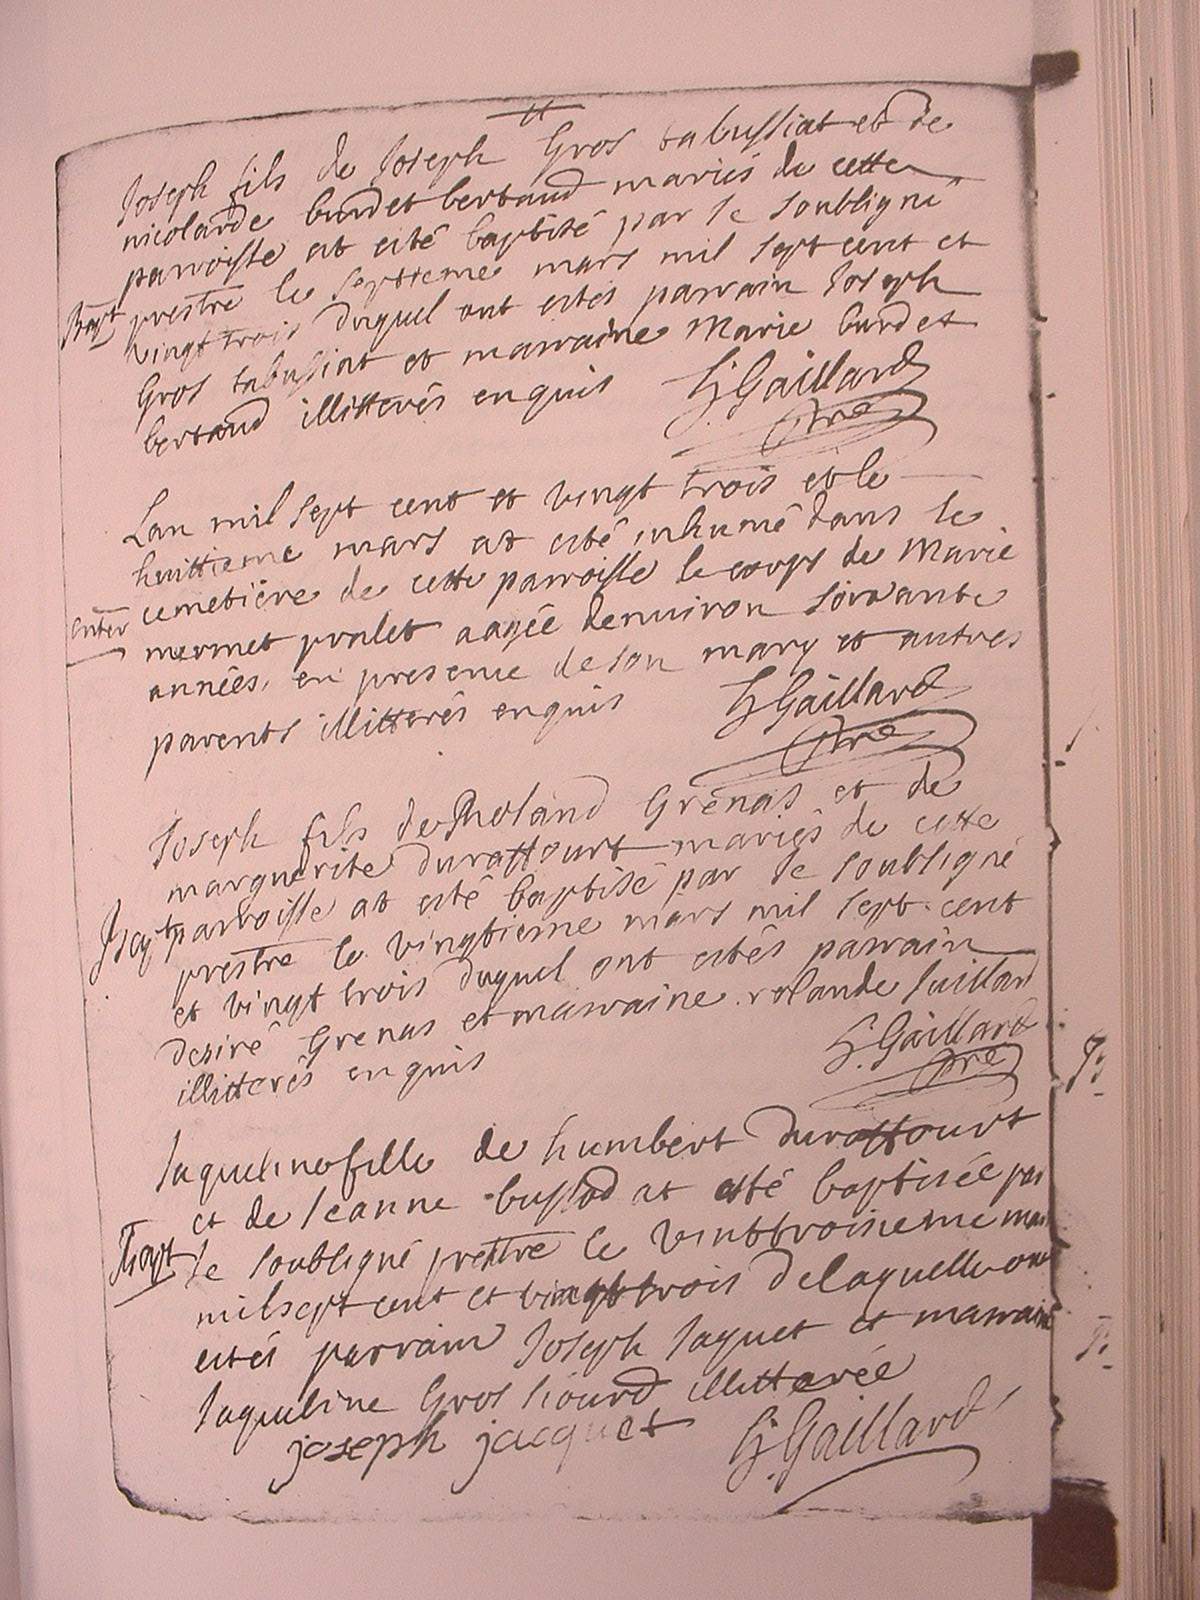 Joseph fils de Joseph Gros tabussiat et de
nicolarde burdet bertaud mariés de cette
parroisse at esté baptisé par le soubsigné
Bapt prestre le septieme mars mil sept cent et
vingt trois duquel ont estés parrain Joseph
Gros tabussiat et marraine Marie burdet
bertaud illitterés enquis Gaillard
ptre
Lan mil sept cent et vingt trois et le
huittieme mars at esté inhumé dans le
cemetiere de cette parroisse le corps de Marie
enter mermet pralet aagée denuiron soixante
années, en presence de son mary et autres
parents illitterés enquis Gaillard
ptre
Joseph fils de Roland Grenas et de
marguerite duraffourt mariés de cette
Bapt parroisse at esté baptisé par le soubsigné
prestre le vingtieme mars mil sept cent
et vingt trois duquel ont estés parrain
desiré Grenas et marraine rolande Gaillard
illitterés enquis Gaillard
ptre
Jaqueline fille de humbert duraffourt
et de Jeanne bussod at esté baptisée par
Bapt le soubsigné prestre le vinttroisieme mars
mil sept cent et vingt trois de laquelle ont
estés parrain Joseph Jaquet et marraine
Jaqueline Gros siourd illitterée
joseph jacquet Gaillard